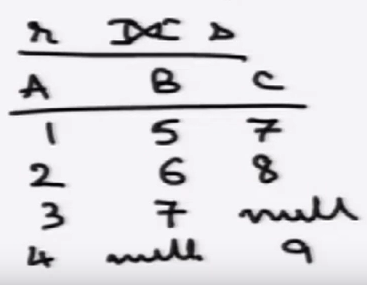 r ⟗ s
A B C
1 5 7
2 6 8
3 7 null
4 null 9